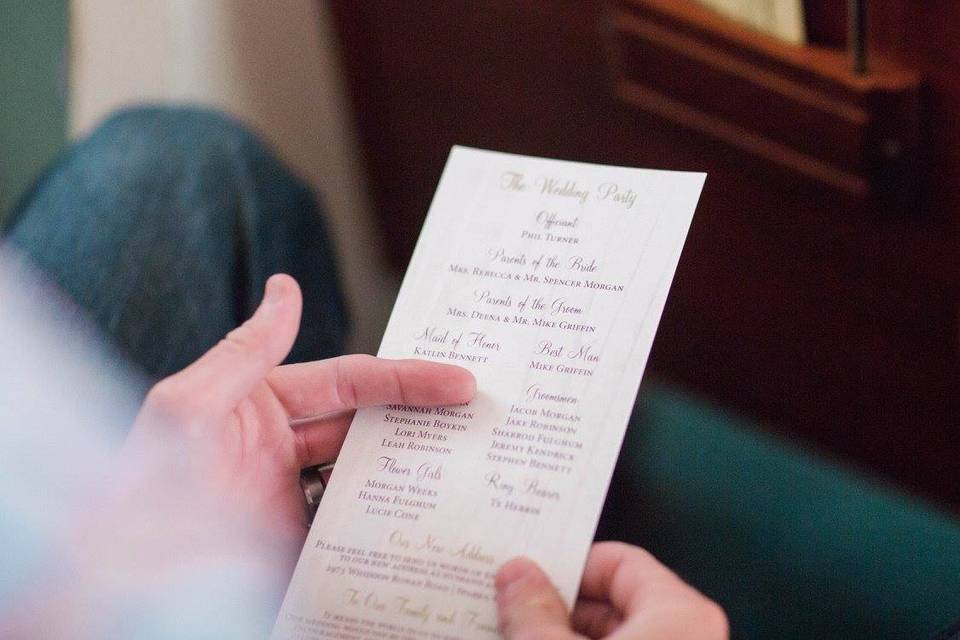 The Wedding Party
Officiant
Phil Turner
Parents of the Bride
Mrs. Rebecca & Mr. Spencer Morgan
Parents of the Groom
Mrs. Deena & Mr. Mike Griffin
Maid of Honor
Katlin Bennett
Best Man
Mike Griffin
Savannah Morgan
Stephanie Boykin
Lori Myers
Leah Robinson
Groomsmen
Jacob Morgan
Jake Robinson
Sharrod Fulghum
Jeremy Kendrick
Stephen Bennett
Flower Girls
Morgan Weeks
Hanna Fulghum
Lucie Cone
Ring Bearer
Ty Herrin
Our New Address
Please feel free to send us words of
to our new address as husband and
To Our Family and
It means the world to
our wedding
encouragement